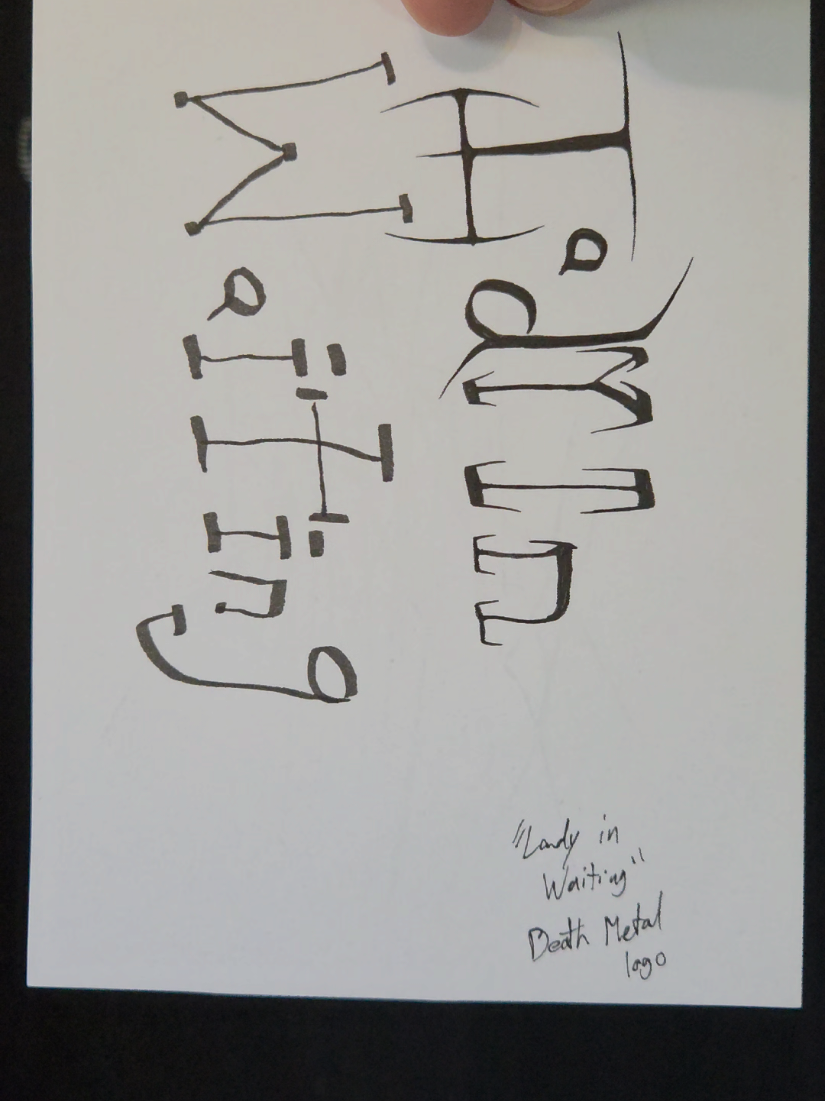 Lady In
Waiting
"Lady in
Waiting"
Death Metal
logo